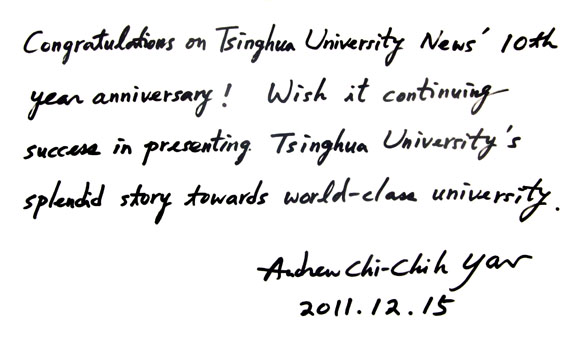 Congratulations on Tsinghua University News' 10th
year anniversary! Wish it continuing
success in presenting Tsinghua University's
splendid story towards world-class university.
Andrew Chi-Chih Yao
2011.12.15